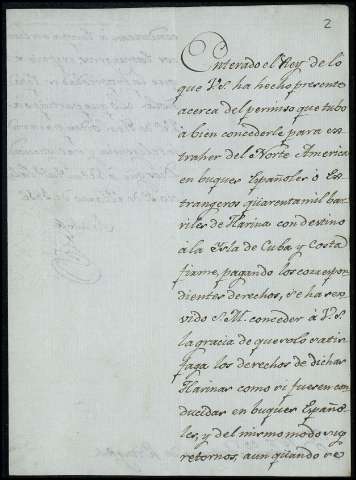 2
Enterado el Rey de lo
que V.S. ha hecho presente
acerca del permiso que tubo
a bien concederle para es-
traher del Norte America
en buques Españoles ó Es-
trangeros quarenta mil bar-
riles de Harina con destino
a la Isla de Cuba y Costa
firme, pagando los corespon-
dientes derechos, se ha ser-
vido S.M. conceder á V.S.
la gracia de que solo satis-
faga los derechos de dichas
Harinas como si fuesen con-
ducidas en buques Españo-
les, y del mismo modo sus
retornos, aun quando se